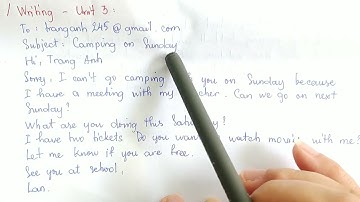 / Writing - Unit 3:
To: tranganh245@gmail.com
Subject: Camping on Sunday
Hi, Trang Anh
Sorry, I can't go camping you on Sunday because
I have a meeting with my cher. Can we go on next
Sunday?
What are you doing this Saturday?
I have two tickets "Do you wan watch movie with me?
Let me know if you are free.
See you at school,
Lan.